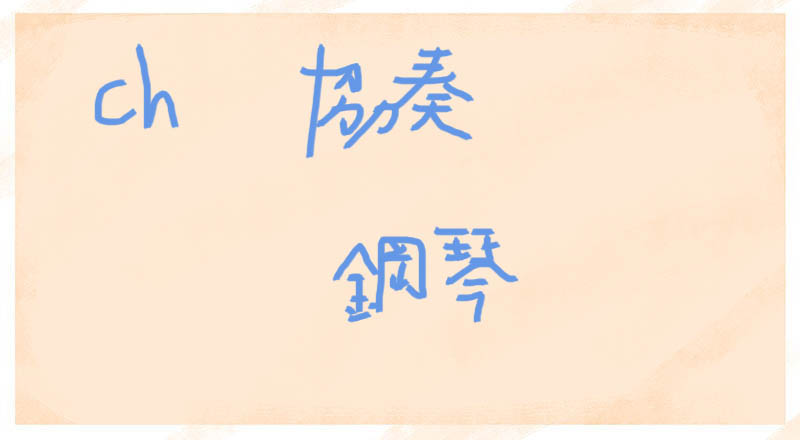 ch 協奏
鋼琴